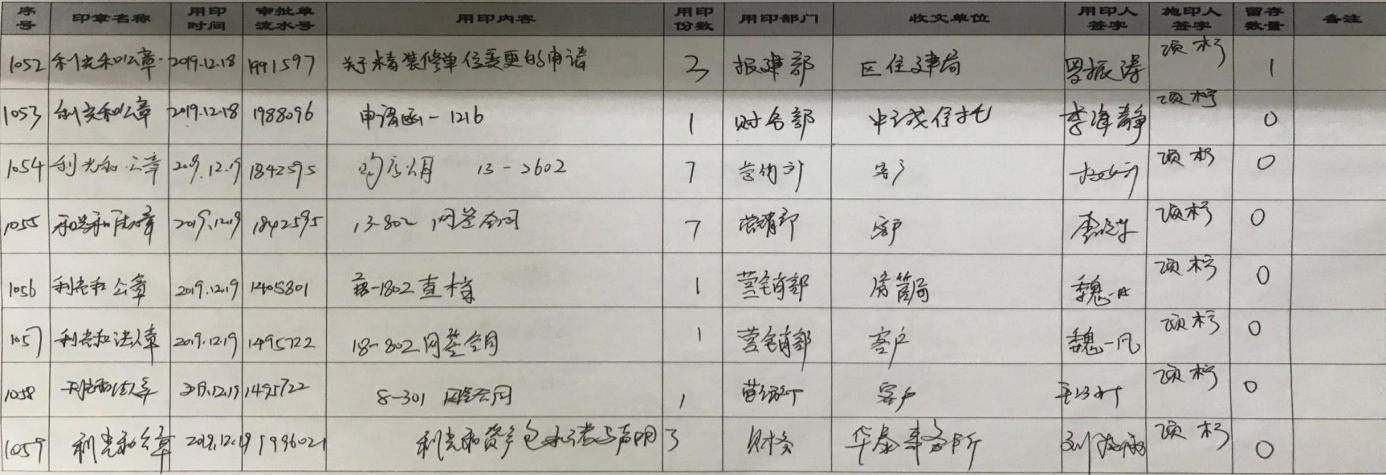 序号 印章名称 用印时间 审批单流水号 用印内容 用印份数 用印部门 收文单位 用印人签字 施印人签字 留存数量 备注
1052 利光和公章 2019.12.18 1991597 关于精装修单位变更的申请 3 报建部 区住建局 项杉 1
1053 利光和公章 2019.12.18 1988096 申请函-1216 1 财务部 中诚信托 李海静 项杉 0
1054 利光和公章 2019.12.19 1842595 13-2602 7 营销部 客户 项杉 0
1055 利光和法人章 2019.12.19 1842595 13-802 网签合同 7 营销部 客户 项杉 0
1056 利光和公章 2019.12.19 1405801 -1802查档 1 营销部 房管局 魏一凡 项杉 0
1057 利光和法人章 2019.12.19 1495722 18-802网签合同 1 营销部 客户 魏一凡 项杉 0
1058 利光和法人章 2019.12.19 1495722 8-301 网签合同 1 营销部 客户 项杉 0
1059 利光和公章 2019.12.19 1996021 利光和资产包承诺与声明 3 财务 华泰事务所 项杉 0